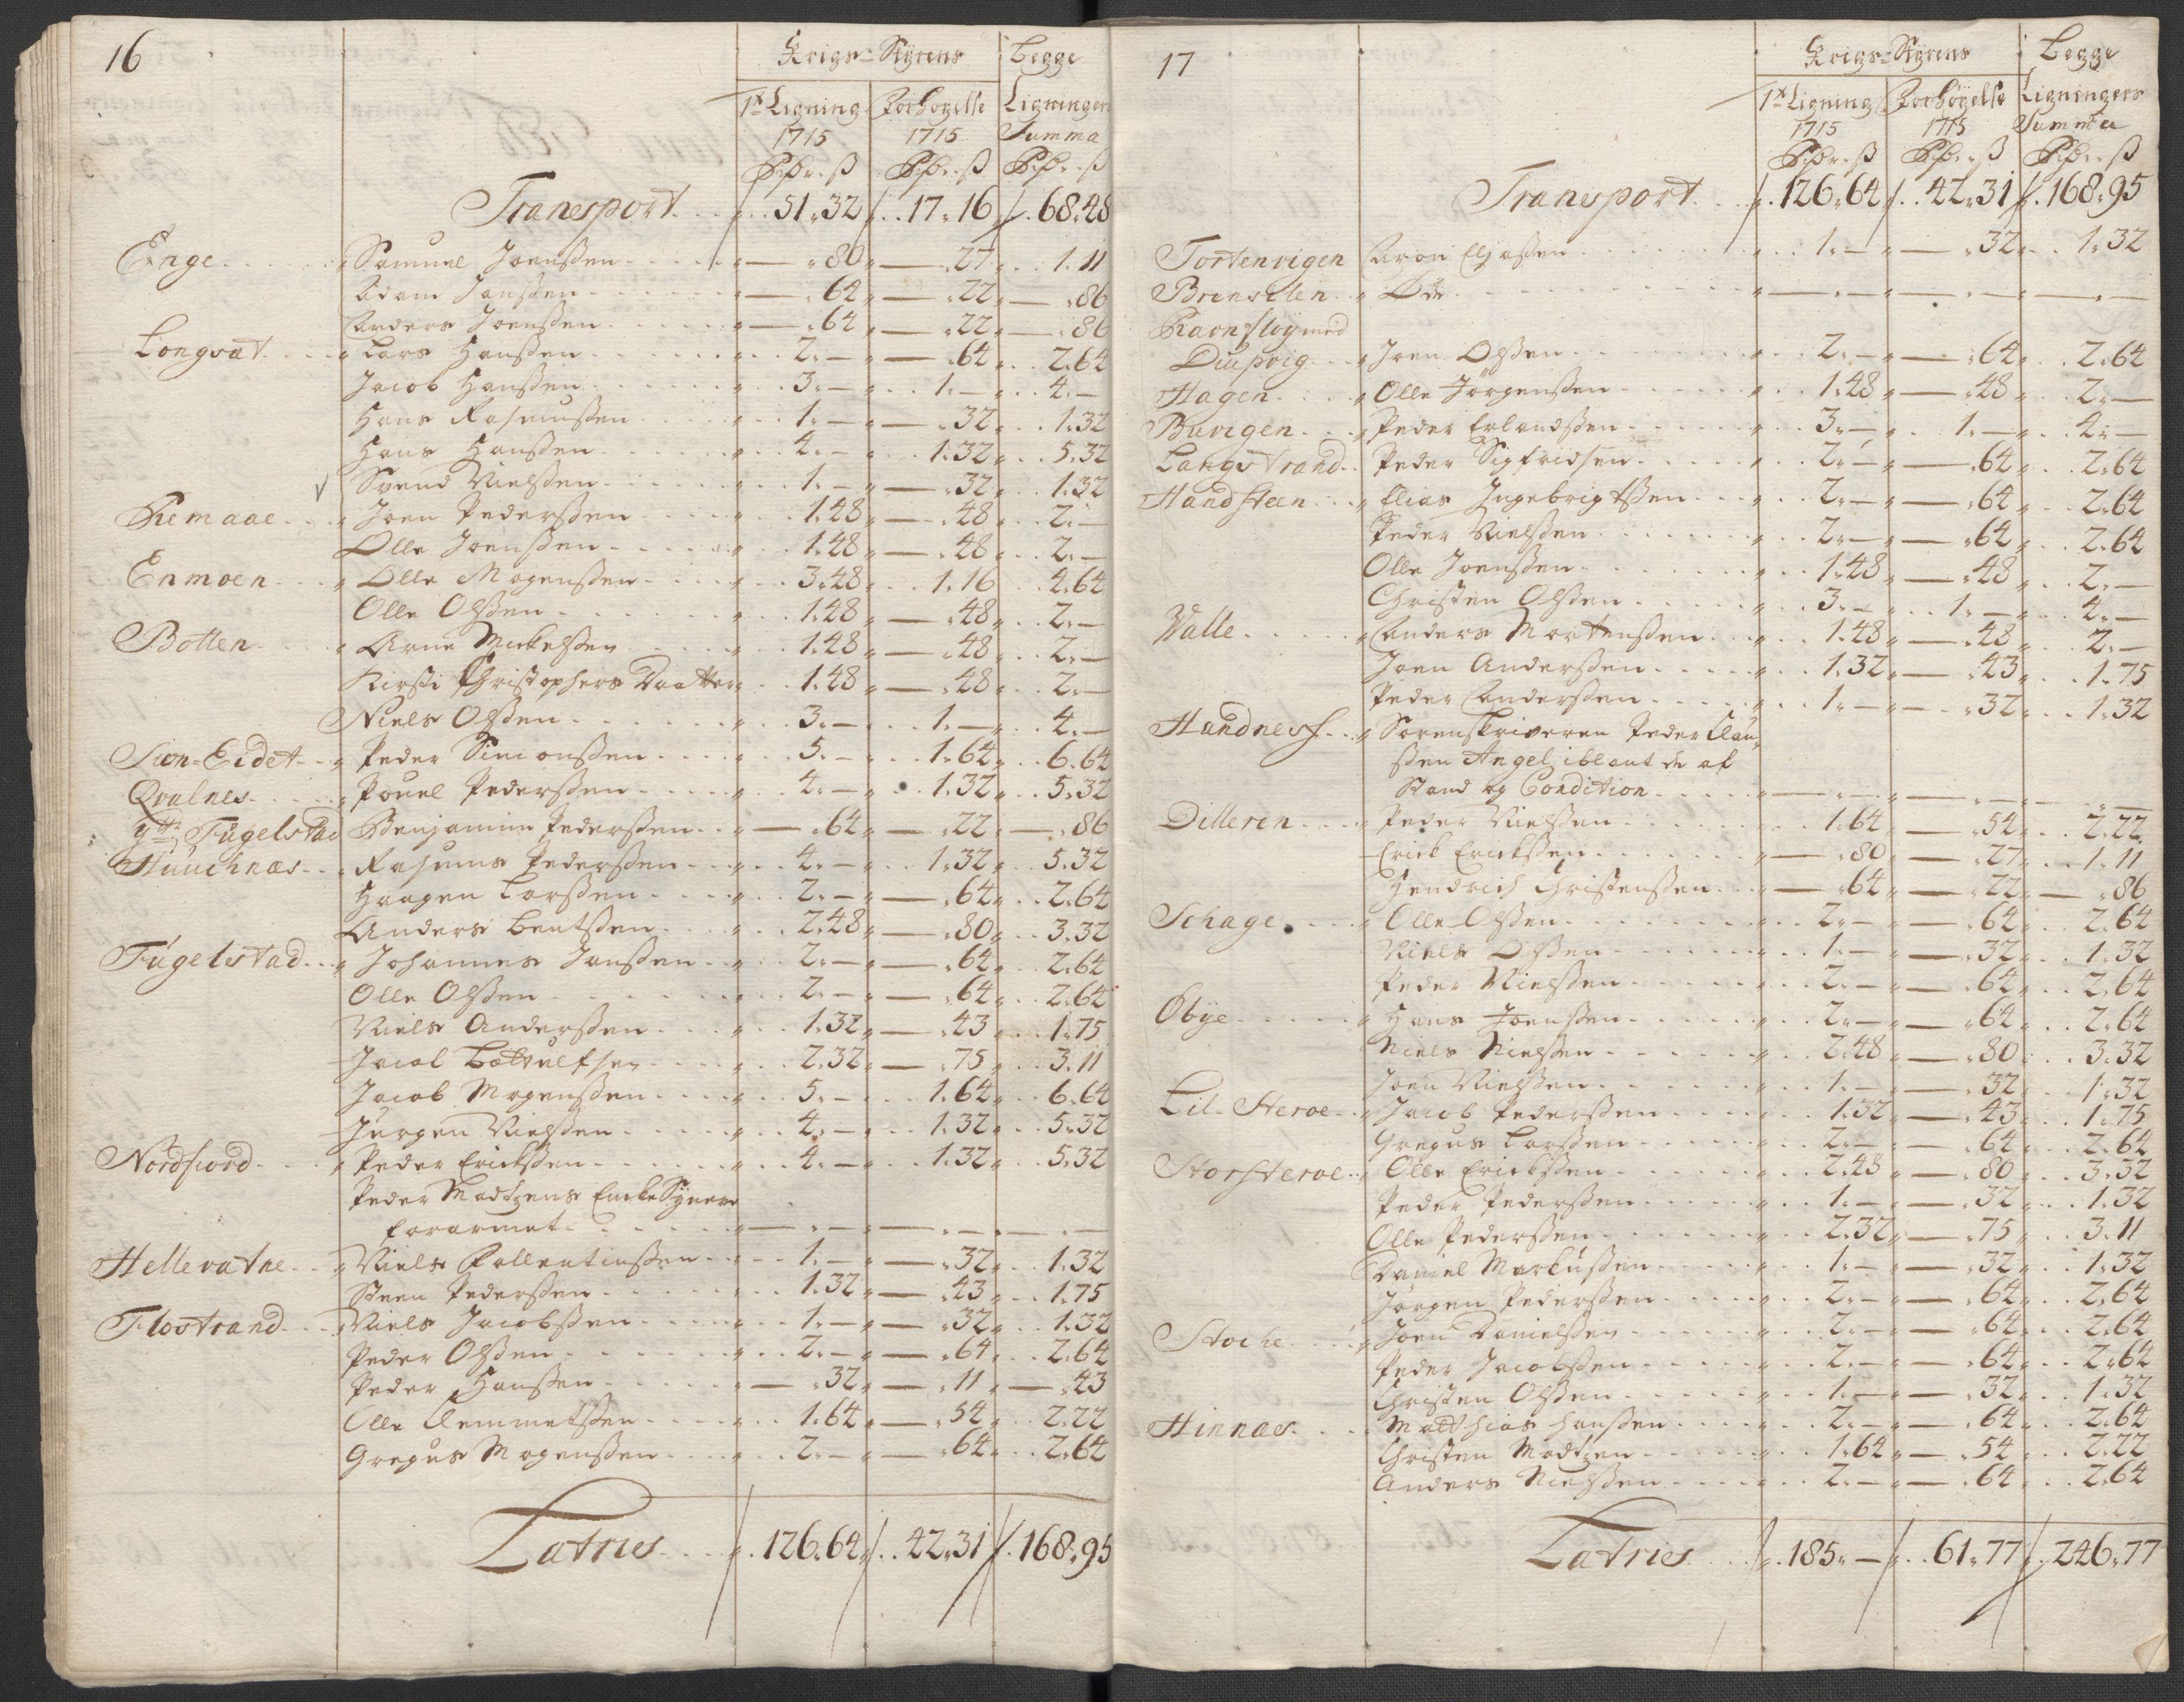 16
Krigs-Styrens Begge
1te Ligning Forhøyelse Ligningers
1715 1715 Summa
Rdr. ß Rdr. ß Rdr. ß
Transport 51.32 17.16 68.48
Enge Samuel Joenßen — 80 — 27 1.11
Adam Janßen — 64 — 22 — 86
Anders Joenßen — 64 — 22 — 86
Longvat Lars Hanßen 2.— — 64 2.64
Jacob Hanßen 3.— 1.— 4.—
Hans Rasmußen 1.— — 32 1.32
Hans Hanßen 4.— 1.32 5.32
Svend Nielßen 1.— — 32 1.32
Remaae Joen Pederßen 1.48 — 48 2.—
Olle Joenßen 1.48 — 48 2.—
Enmoen Olle Mogenßen 3.48 1.16 4.64
Olle Olßen 1.48 — 48 2.—
Botten Arne Mickelßen 1.48 — 48 2.—
Kirsti Christophers Daatter 1.48 — 48 2.—
Niels Olßen 3.— 1.— 4.—
Sion-Eidet Peder Simonßen 5.— 1.64 6.64
Qvalnes Pouel Pederßen 4.— 1.32 5.32
Ytr Fugelstad Benjamin Pederßen — 64 — 22 — 86
Huuchnæs Rasmus Pederßen 4.— 1.32 5.32
Haagen Larßen 2.— — 64 2.64
Anders Bentßen 2.48 — 80 3.32
Fugelstad Johannes Janßen 2.— — 64 2.64
Olle Olßen 2.— — 64 2.64
Niels Anderßen 1.32 — 43 1.75
Jacob Bottulfsen 2.32 — 75 3.11
Jacob Mogenßen 5.— 1.64 6.64
Jørgen Nielßen 4.— 1.32 5.32
Nordfiord Peder Erickßen 4.— 1.32 5.32
Peder Madtzens Encke Synes
forarmet — — —
Hellevatne Niels Follentinßen 1.— — 32 1.32
Steen Pederßen 1.32 — 43 1.75
Flostrand Niels Jacobßen 1.— — 32 1.32
Peder Olßen 2.— — 64 2.64
Peder Hanßen — 32 — 11 — 43
Olle Clemmetßen 1.64 — 54 2.22
Gregus Mogenßen 2.— — 64 2.64
Latries 126.64 42.31 168.95
17
Krigs-Styrens Begge
1te Ligning Forhøyelse Ligningers
1715 1715 Summa
Rdr. ß Rdr. ß Rdr. ß
Transport 126.64 42.31 168.95
Tortenvigen Aron Eliaßen 1.— — 32 1.32
Brenselen Øde — — —
Ravnfløy med
Diupvig Joen Olßen 2.— — 64 2.64
Hagen Olle Jørgenßen 1.48 — 48 2.—
Buvigen Peder Erlandßen 3.— 1.— 4.—
Langstrand Peder Sigfridsen 2.— — 64 2.64
Handsteen Elias Ingebrigtßen 2.— — 64 2.64
Peder Nielßen 2.— — 64 2.64
Olle Joenßen 1.48 — 48 2.—
Christen Olßen 3.— 1.— 4.—
Valle Anders Mortenßen 1.48 — 48 2.—
Joen Anderßen 1.32 — 43 1.75
Peder Anderßen 1.— — 32 1.32
Handness Sorenskriveren Peder Clau-
ßen Angel iblant de af
Stand og Condition — — —
Dilleren Peder Nielßen 1.64 — 54 2.22
Erick Erickßen — 80 — 27 1.11
Hendrich Christenßen — 64 — 22 — 86
Schage Olle Olßen 2.— — 64 2.64
Niels Olßen 1.— — 32 1.32
Peder Nielßen 2.— — 64 2.64
Øbye Hans Joenßen 2.— — 64 2.64
Niels Nielßen 2.48 — 80 3.32
Joen Nielßen 1.— — 32 1.32
Lil-Steroe Jacob Pederßen 1.32 — 43 1.75
Gregus Larßen 2.— — 64 2.64
Storsteroe Olle Erickßen 2.48 — 80 3.32
Peder Pederßen 1.— — 32 1.32
Olle Pederßen 2.32 — 75 3.11
Daniel Markußen 1.— — 32 1.32
Jørgen Pederßen 2.— — 64 2.64
Stoche Joen Danielßen 2.— — 64 2.64
Peder Jacobßen 2.— — 64 2.64
Christen Olßen 1.— — 32 1.32
Hinnæs Matthias Hanßen 2.— — 64 2.64
Christen Madtzen 1.64 — 54 2.22
Anders Nielßen 2.— — 64 2.64
Latries 185.— 61.77 246.77